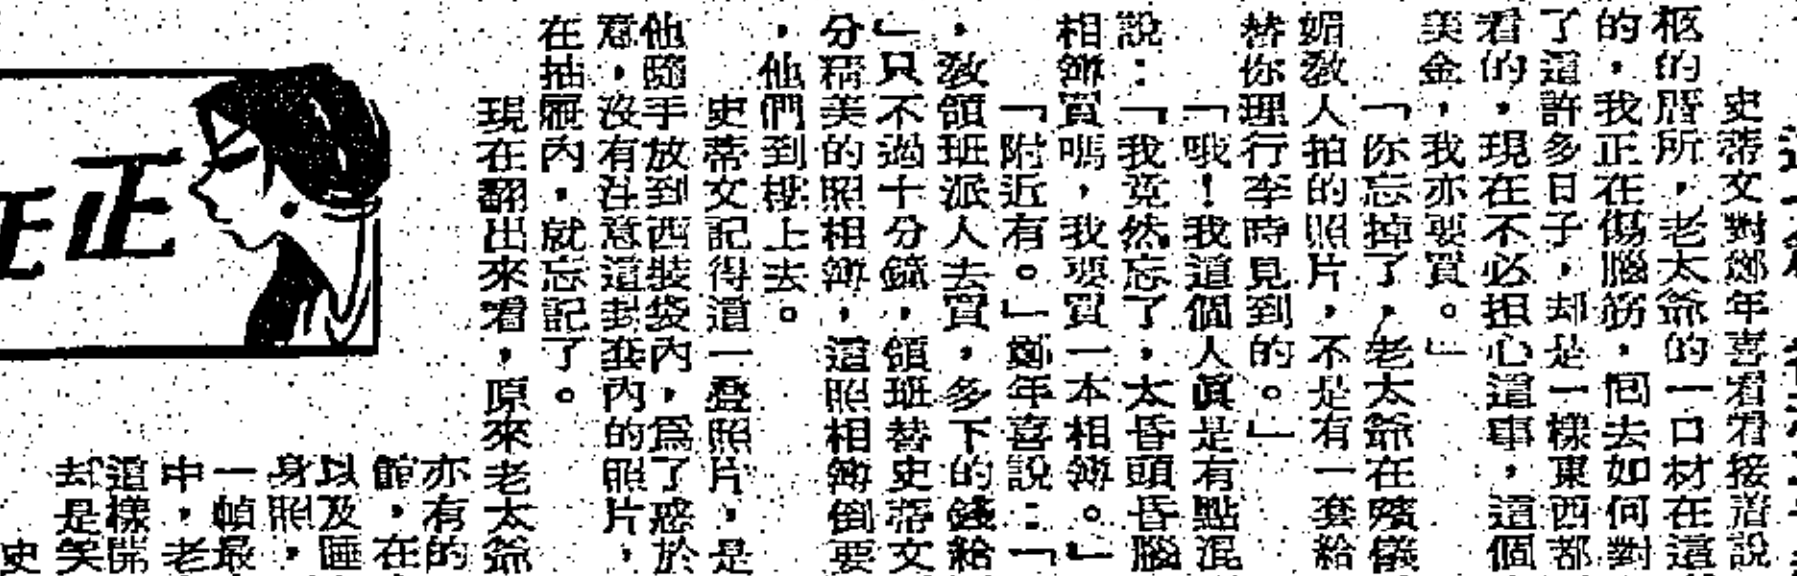 史蒂文對鄭年喜看看接着說
柩的曆所，老太爺的一口材在這
的，我正在傷腦筋，囘去如何對
了這許多日子，却是一樣東西都
看的，現在不必担心這事，這個
美金，我亦要買。」
「你忘掉了，老太爺在殯儀
媚教人拍的照片，不是有一套給
替你理行李時見到的。」
「哦！我這個人眞是有點混
說：「我竟然忘了，太昏頭昏腦
相簿買嗎，我要買一本相簿。」
「附近有。」鄭年喜說：「
，教領班派人去買，多下的錢給
」只不過十分鐘，領班替史蒂文
分精美的照相簿，這照相簿倒要
，他們到樓上去。
史蒂文記得這一叠照片，是
他隨手放到西裝袋內，爲了惑於
意，沒有注意這封套內的照片，
在抽屜內，就忘記了。
現在翻出來看，原來老太爺
亦有的
館，在
以及睡
身照，
一幀最
中，老
這樣開
却是笑
史
正